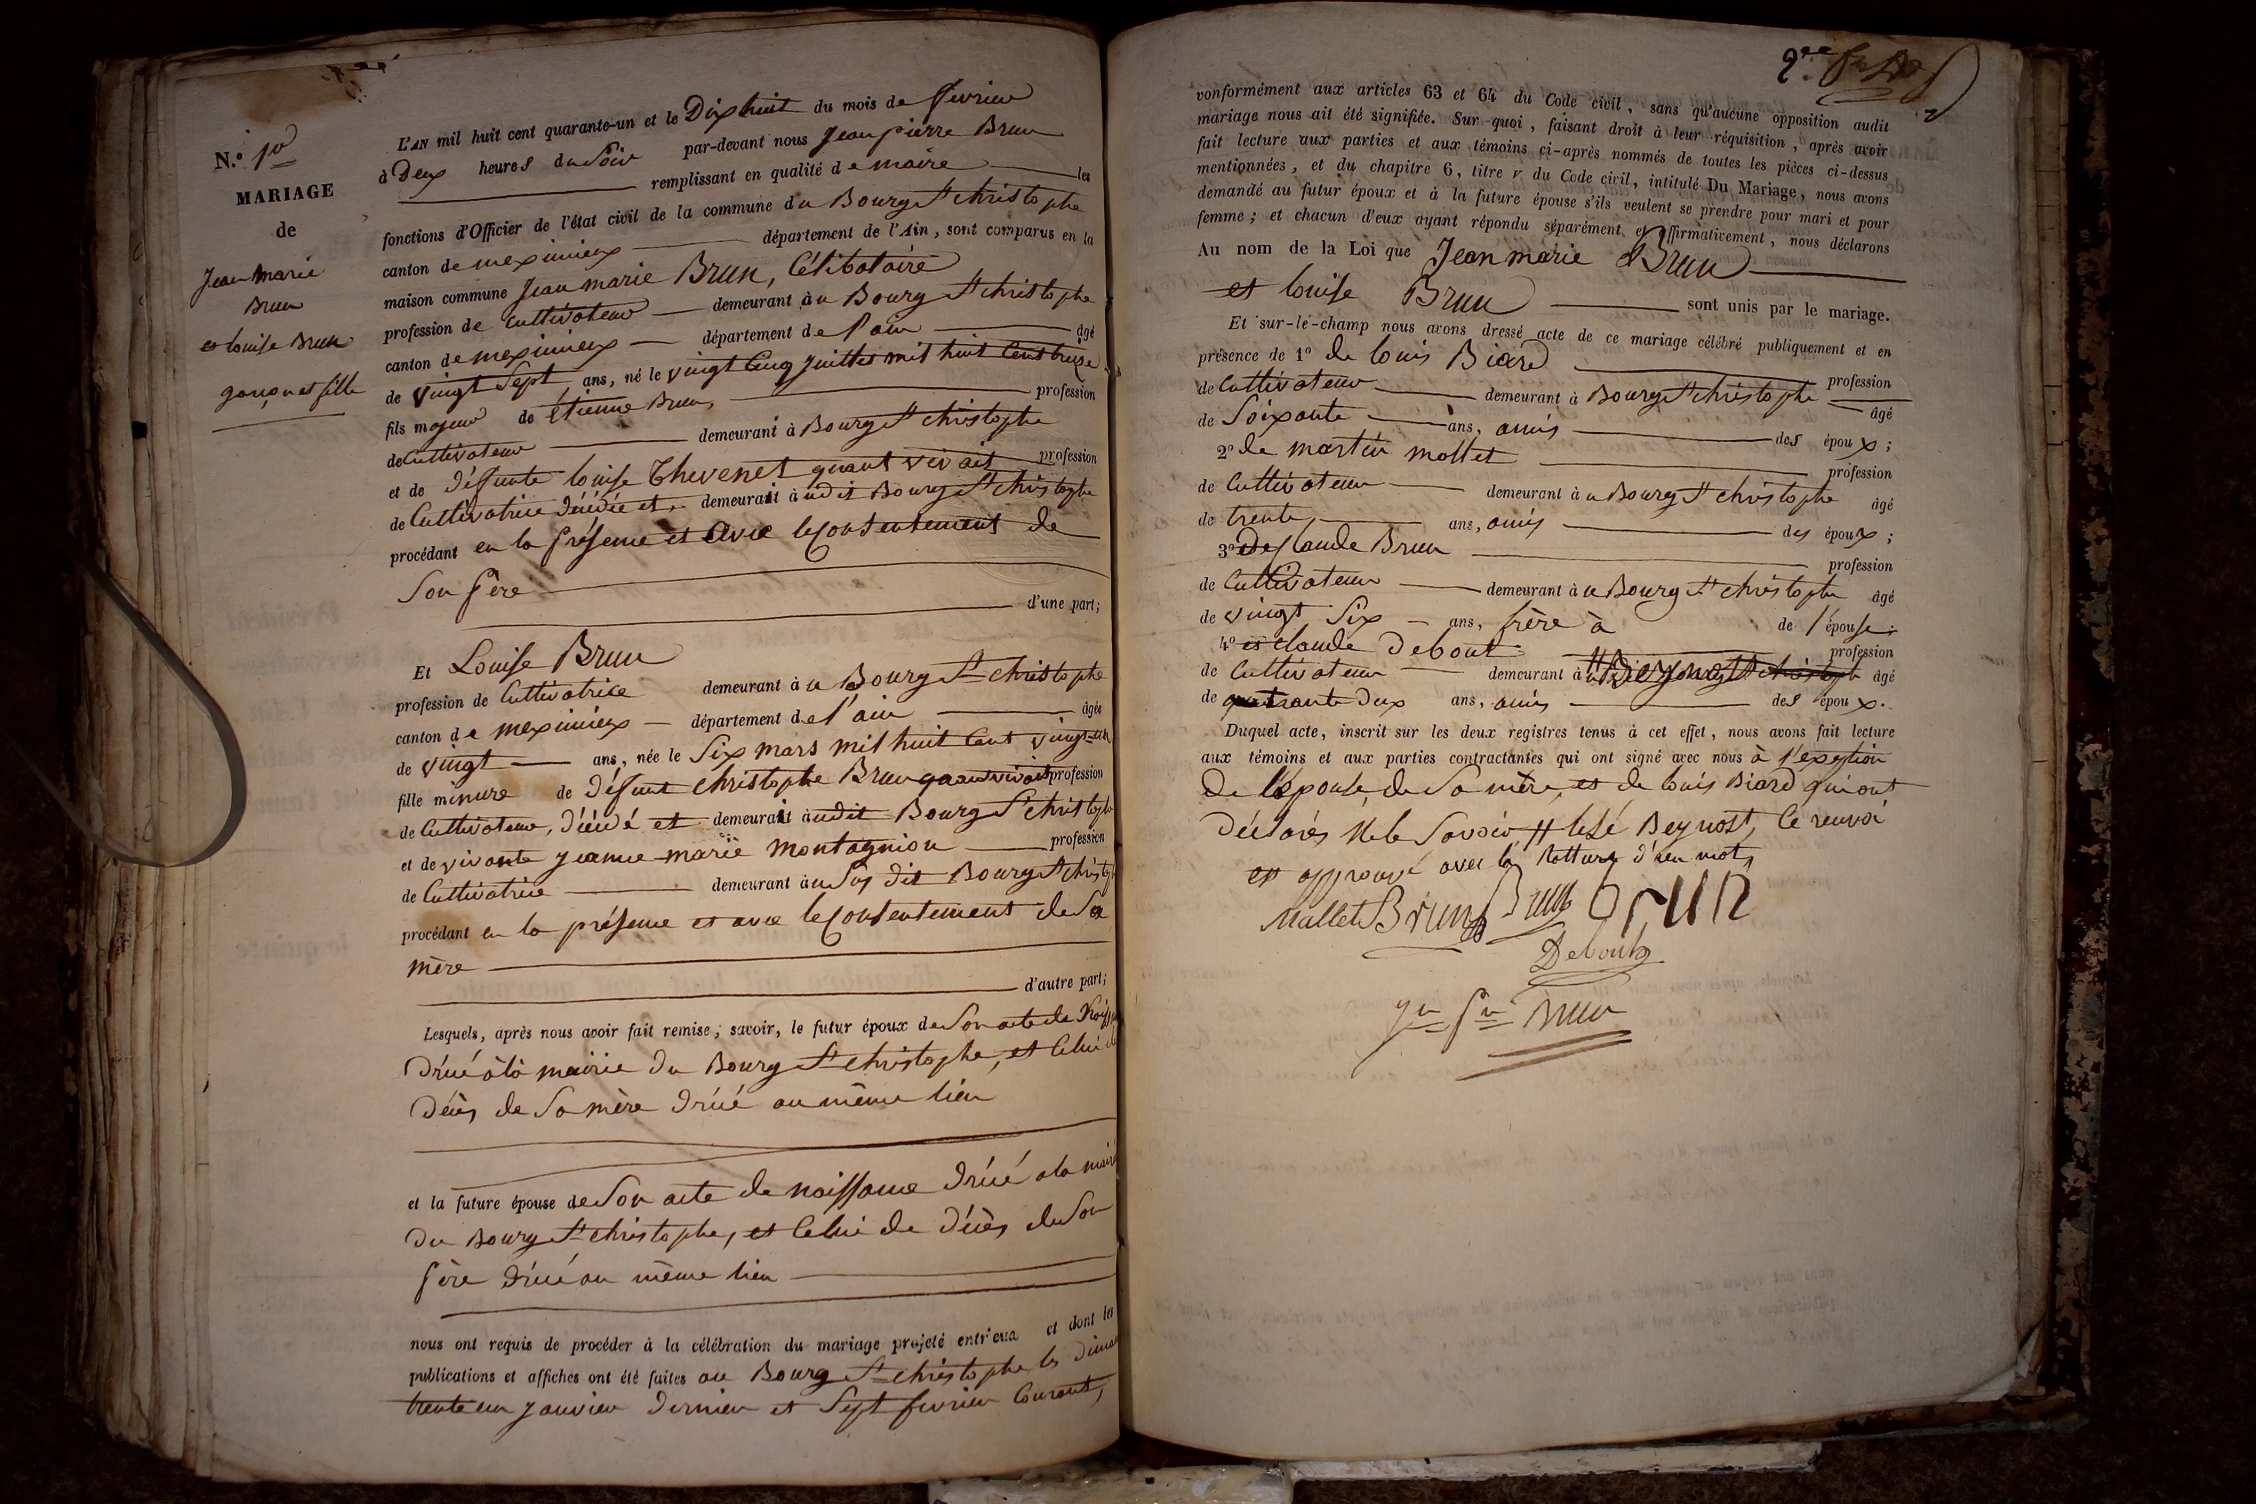 N.º 1er
MARIAGE
de
Jean Marie
Brun
et louise Brun
garçon et fille
L'AN mil huit cent quarante-un et le Dix huit du mois de fevrier
à Deux heures du Soir par-devant nous Jean pierre Brun
remplissant en qualité de maire les
fonctions d'Officier de l'état civil de la commune du Bourg St christophe
canton de meximieux département de l'Ain, sont comparus en la
maison commune Jean marie Brun, Célibataire
profession de Cultivateur demeurant à u Bourg St christophe
canton de meximieux département de l'ain âgé
de vingt Sept ans, né le vingt Cinq Juillet mil huit Cent treize
fils majeur de étienne Brun, profession
de Cultivateur demeurant à Bourg St christophe
et de défunte louise Thevenet quant vivait profession
de Cultivatrice décédée et demeurait à udit Bourg St christophe
procédant en la présence et avec le Consentement de
Son père
d'une part;
Et Louise Brun
profession de Cultivatrice demeurant à u Bourg St christophe
canton de meximieux département de l'ain âgée
de vingt ans, née le Six mars mil huit Cent vingt-un
fille mineure de défunt christophe Brun quant vivait profession
de Cultivateur, décédé et demeurait à udit Bourg St christophe
et de vivante jeanne marie montagnion profession
de Cultivatrice demeurant à u Sus dit Bourg St christ
procédant en la présence et avec le Consentement de Sa
mère
d'autre part;
Lesquels, après nous avoir fait remise, savoir, le futur époux de Son acte de
Drécé à la mairie du Bourg St christophe, et Celui de
décès de Sa mère Drécé au même lieu
et la future épouse de Son acte de naissance Drécé a la mairie
du Bourg St christophe, et Celui de décès de Son
père Drécé au même lieu
nous ont requis de procéder à la célébration du mariage projeté entr'eux et dont les
publications et affiches ont été faites au Bourg St christophe les
trente un janvier dernier et Sept fevrier Courant,
conformément aux articles 63 et 64 du Code civil, sans qu'aucune opposition audit
mariage nous ait été signifiée. Sur quoi, faisant droit à leur réquisition, après avoir
fait lecture aux parties et aux témoins ci-après nommés de toutes les pièces ci-dessus
mentionnées, et du chapitre 6, titre V du Code civil, intitulé Du Mariage, nous avons
demandé au futur époux et à la future épouse s'ils veulent se prendre pour mari et pour
femme; et chacun d'eux ayant répondu séparément et affirmativement, nous déclarons
Au nom de la Loi que Jean marie Brun
et louise Brun sont unis par le mariage.
Et sur-le-champ nous avons dressé acte de ce mariage célébré publiquement et en
présence de 1º de louis Biard profession
de Cultivateur demeurant à Bourg St christophe âgé
de Soixante ans, amis des époux;
2º de martin mollet profession
de Cultivateur demeurant à u Bourg St christophe âgé
de trente ans, amis des époux;
3º de Claude Brun profession
de Cultivateur demeurant à u Bourg St christophe âgé
de vingt Six ans, frère à de l'épouse;
4º et claude Debout profession
de Cultivateur demeurant à âgé
de quarante deux ans, amis des époux.
Duquel acte, inscrit sur les deux registres tenus à cet effet, nous avons fait lecture
aux témoins et aux parties contractantes qui ont signé avec nous à l'exeption
de l'épouse, de Sa mère, et de louis Biard qui ont
déclarés ne le Savoir # Beynost, Ce renvoi
et approuvé avec la rature d'un mot,
Mallet Brun Brun Brun
Debout
jn pre Brun